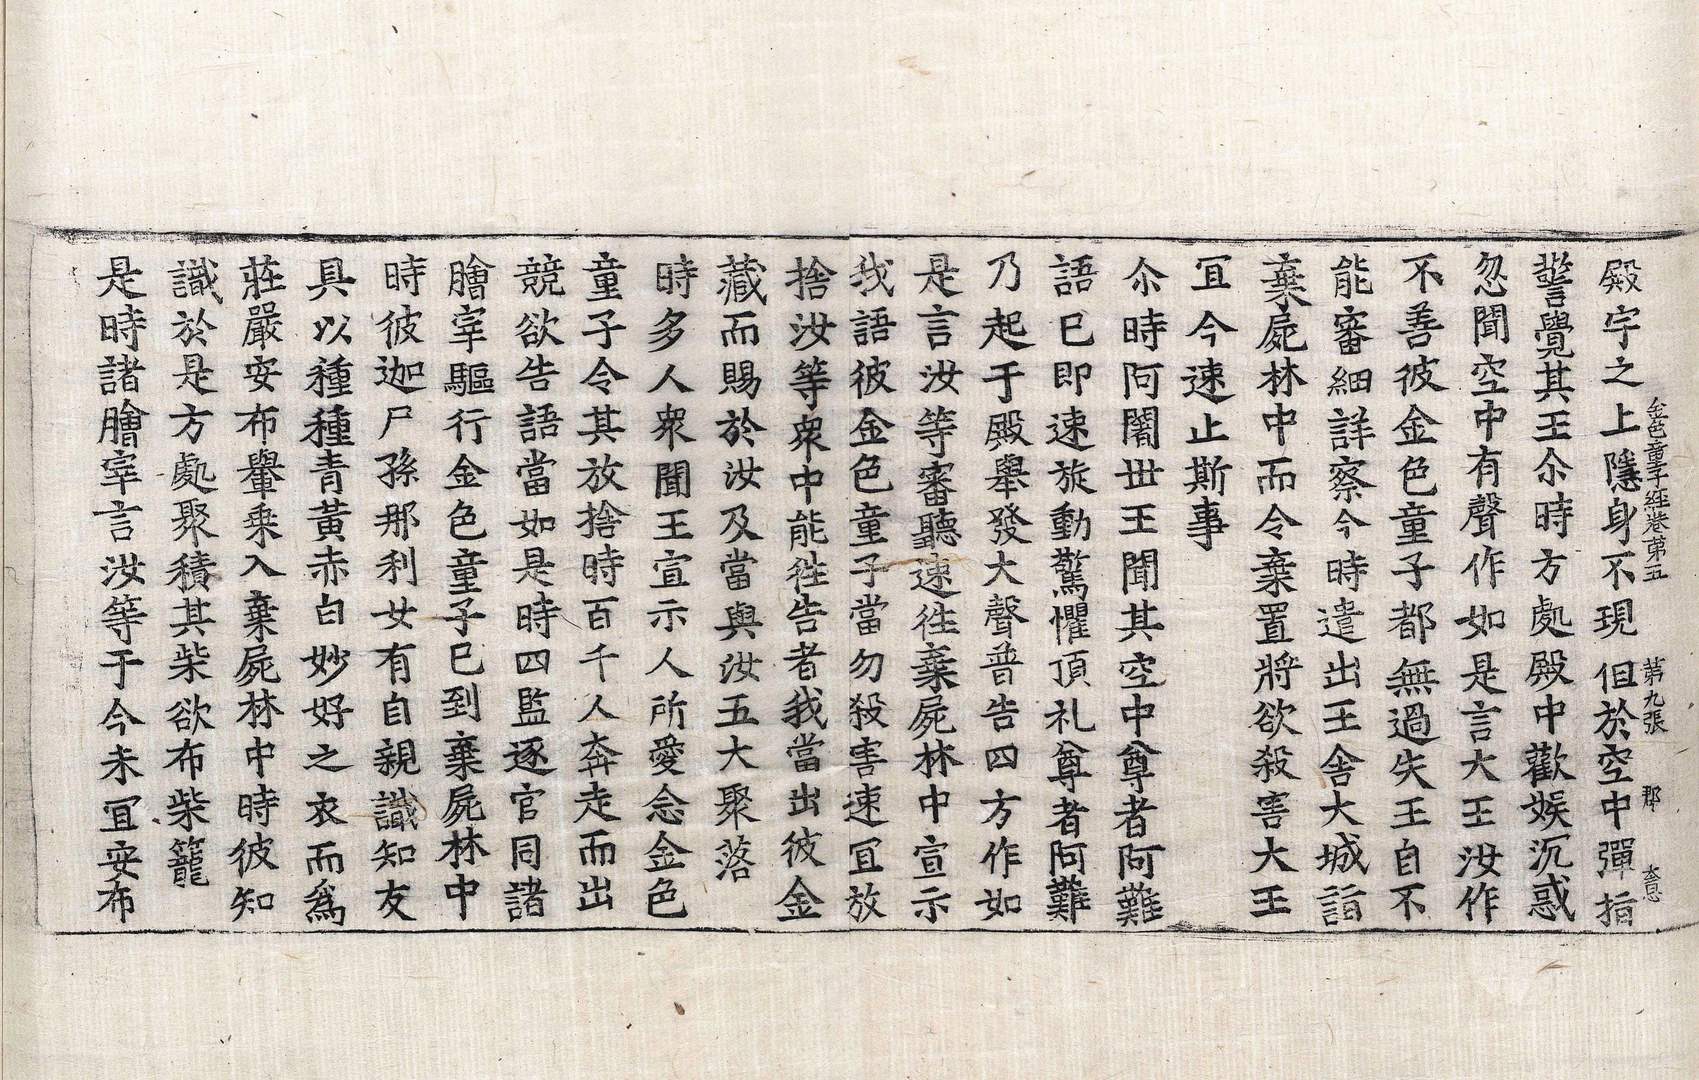 金色童子經卷第五 第九張 郡
殿宇之上隱身不現但於空中彈指
警覺其王尒時方處殿中歡娛沉惑
忽聞空中有聲作如是言大王汝作
不善彼金色童子都無過失王自不
能審細詳察今時遣出王舍大城詣
棄屍林中而令棄置將欲殺害大王
冝今速止斯事
尒時阿闍世王聞其空中尊者阿難
語已即速旋動驚懼頂礼尊者阿難
乃起于殿舉發大聲普告四方作如
是言汝等審聽速往棄屍林中宣示
我語彼金色童子當勿殺害速冝放
捨汝等衆中能往告者我當出彼金
藏而賜於汝及當與汝五大聚落
時多人衆聞王宣示人所愛念金色
童子令其放捨時百千人奔走而出
競欲告語當如是時四監逐官同諸
膾宰驅行金色童子已到棄屍林中
時彼迦尸孫那利女有自親識知友
具以種種青黃赤白妙好之衣而爲
莊嚴安布轝乗入棄屍林中時彼知
識於是方處聚積其柴欲布柴籠
是時諸膾宰言汝等于今未冝安布